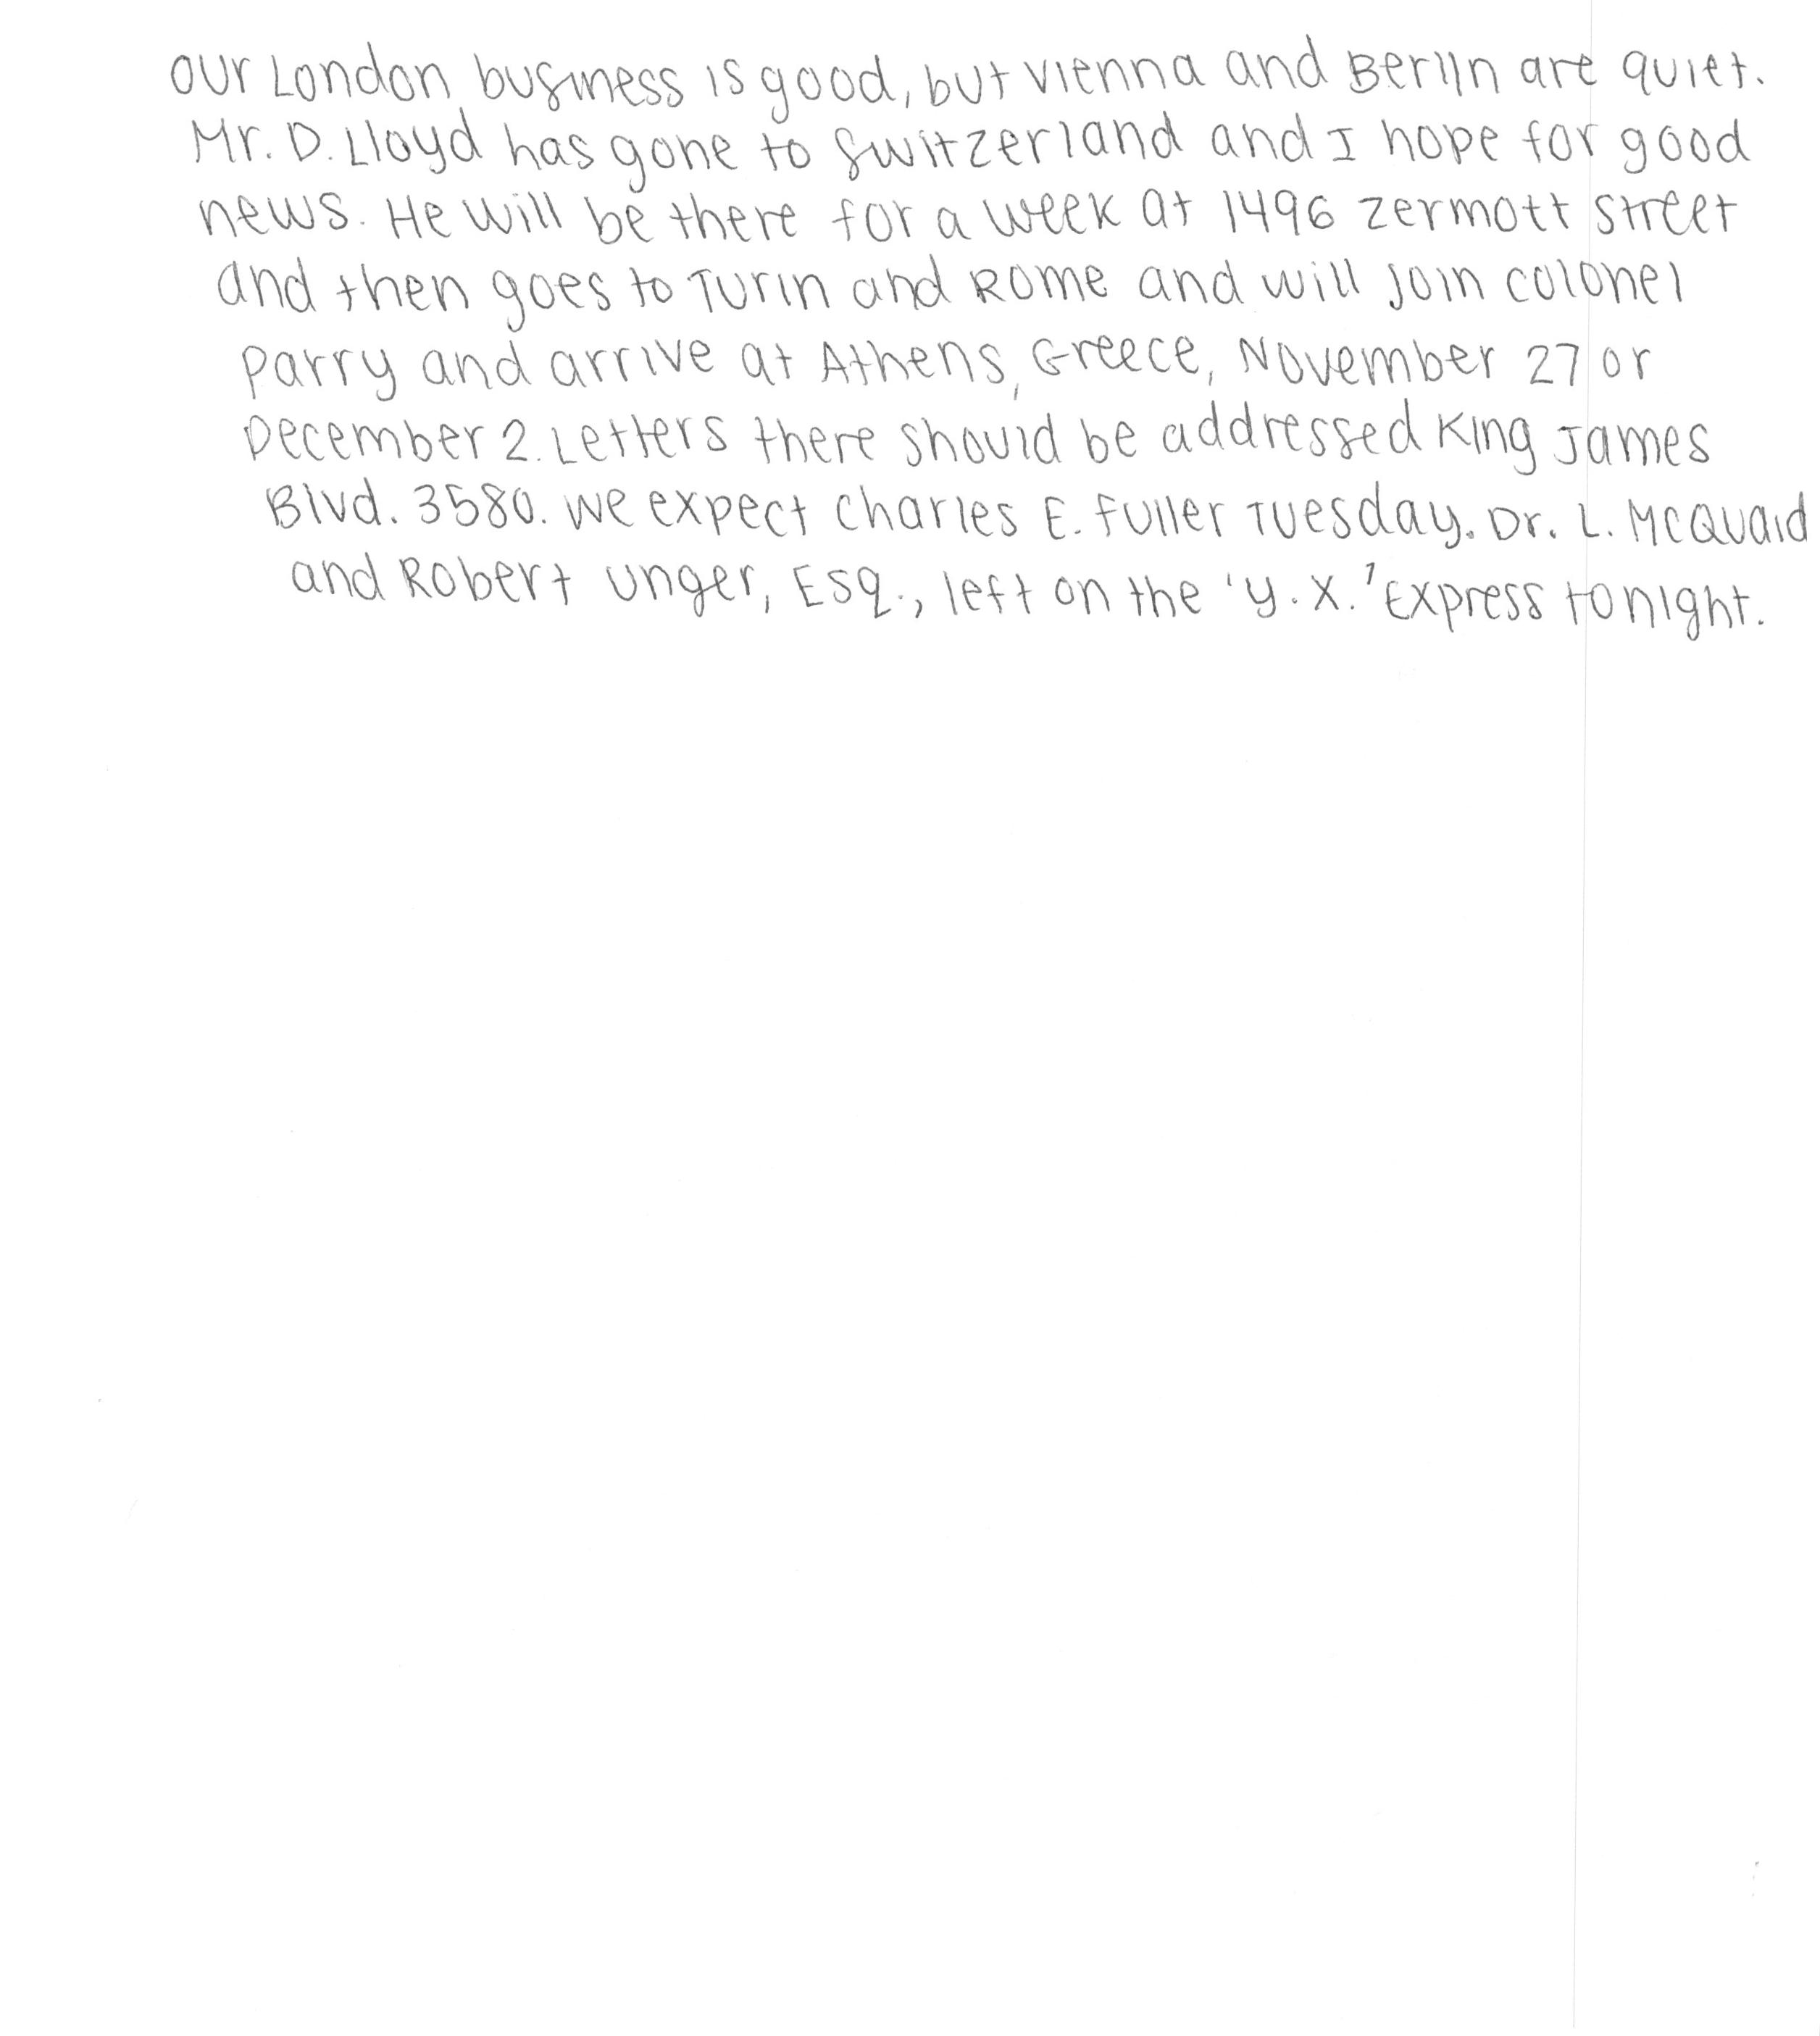 Our London business is good, but Vienna and Berlin are quiet.
Mr. D. Lloyd has gone to Switzerland and I hope for good
news. He will be there for a week at 1496 Zermott Street
and then goes to Turin and Rome and will join Colonel
Parry and arrive at Athens, Greece, November 27 or
December 2. Letters there should be addressed King James
Blvd. 3580. We expect Charles E. Fuller Tuesday. Dr. L. McQuaid
and Robert Unger, Esq., left on the 'Y. X.' Express tonight.